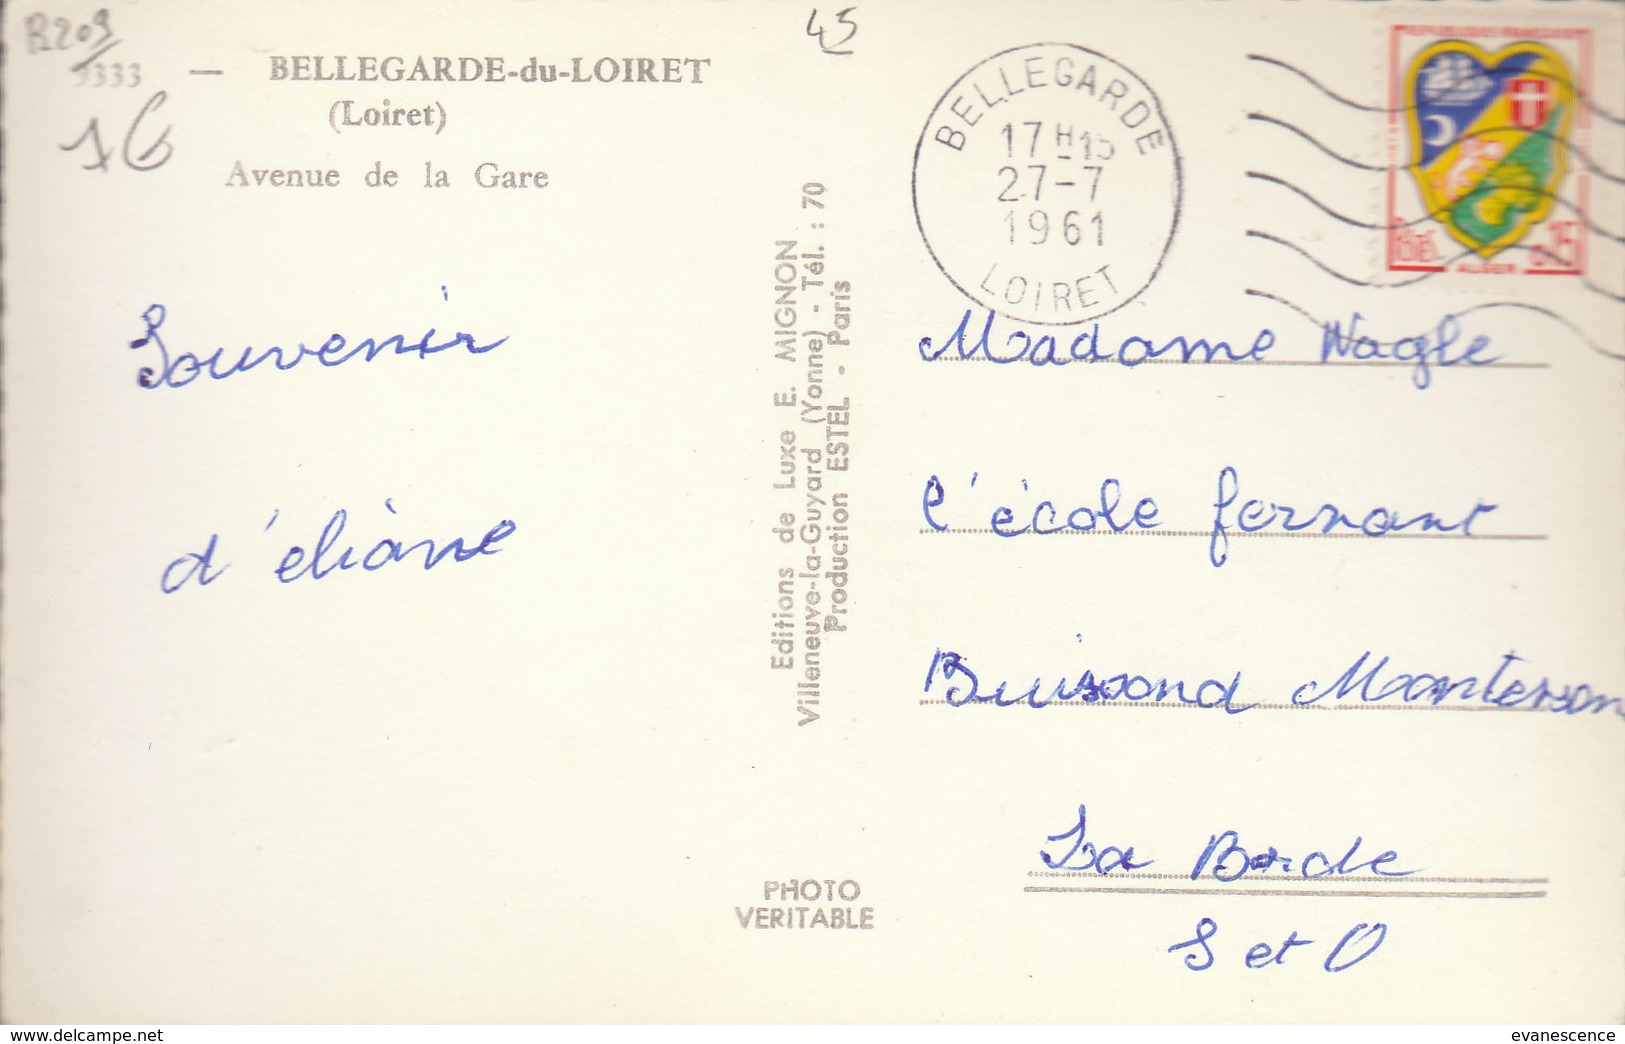 R209
45
9333 — BELLEGARDE-du-LOIRET
(Loiret)
Avenue de la Gare
1G
BELLEGARDE
17 H 15
27-7
1961
LOIRET
REPUBLIQUE FRANCAISE
POSTES 0,15
ALGER
Souvenir
d'éliane
Editions de Luxe E. MIGNON
Villeneuve-la-Guyard (Yonne) - Tél. : 70
Production ESTEL - Paris
PHOTO
VERITABLE
Madame Nagle
l'école fernant
Buissond Monterson
La Borde
S et O
www.delcampe.net
evanescence